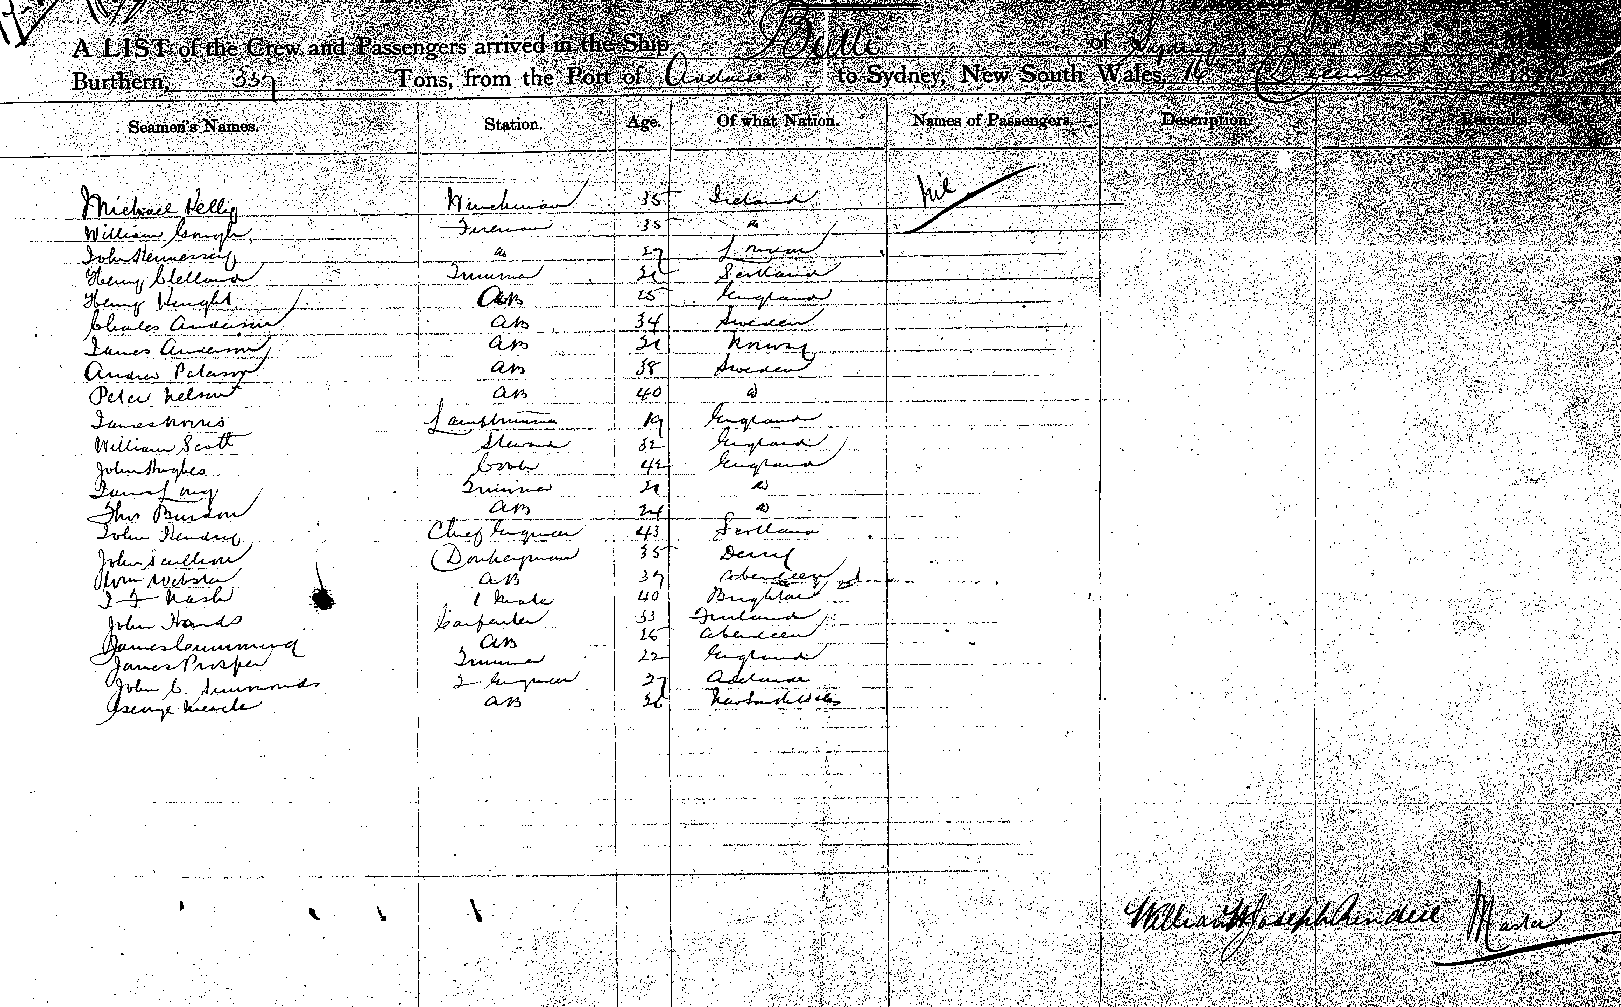 A LIST of the Crew and Passengers arrived in the Ship of Sydney
Burthern, 337 Tons, from the Port of to Sydney, New South Wales, 16 December 18
Seamen's Names. Station. Age. Of what Nation. Names of Passengers. Description. Remarks.
Michael Kelly Winchman 35 Ireland Nil
William Gough Fireman 35 "
John Hennessy " 27
Henry Trimmer Scotland
Henry Knight AB 25 England
Charles Anderson AB 34 Sweden
James Anderson AB Norway
Andrew Peterson AB 38 Sweden
Peter Nelson AB 40 "
James Norris Lamptrimmer 19 England
William Scott Steward 32 England
John Hughes Cook 42 England
James Long Trimmer 21 "
Thos AB 24 "
John Hendry Chief Engineer 43 Scotland
John Scullion Donkeyman 35 Derry
Wm Webster AB 37 Aberdeen
Nash 1 Mate 40 Brighton
John Hands Carpenter 33 Finland
James Cumming AB 25 Aberdeen
James Prosper Trimmer 22 England
John C. Simmonds 2 Engineer 27 Adelaide
George AB New South Wales
William H Joseph Master